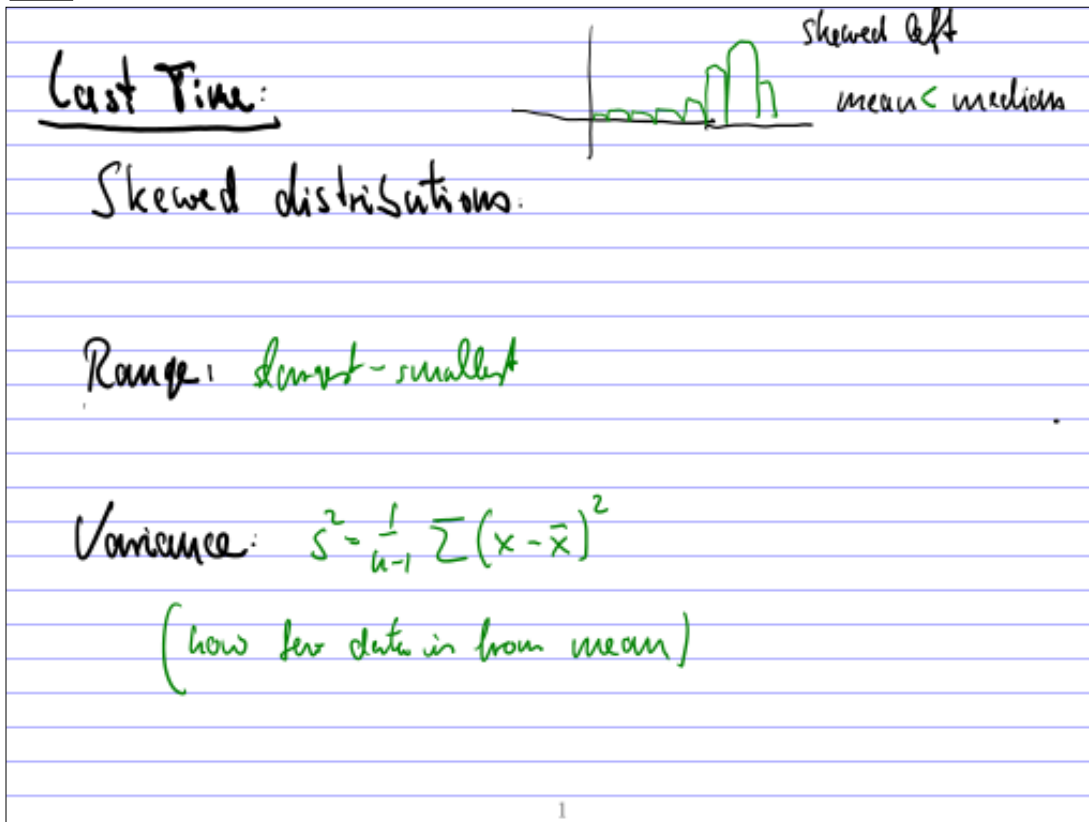 Last Time:
skewed left
mean < median
Skewed distributions.
Range: largest - smallest
Variance: s² = 1/(n-1) Σ(x - x̄)²
(how far data is from mean)
1